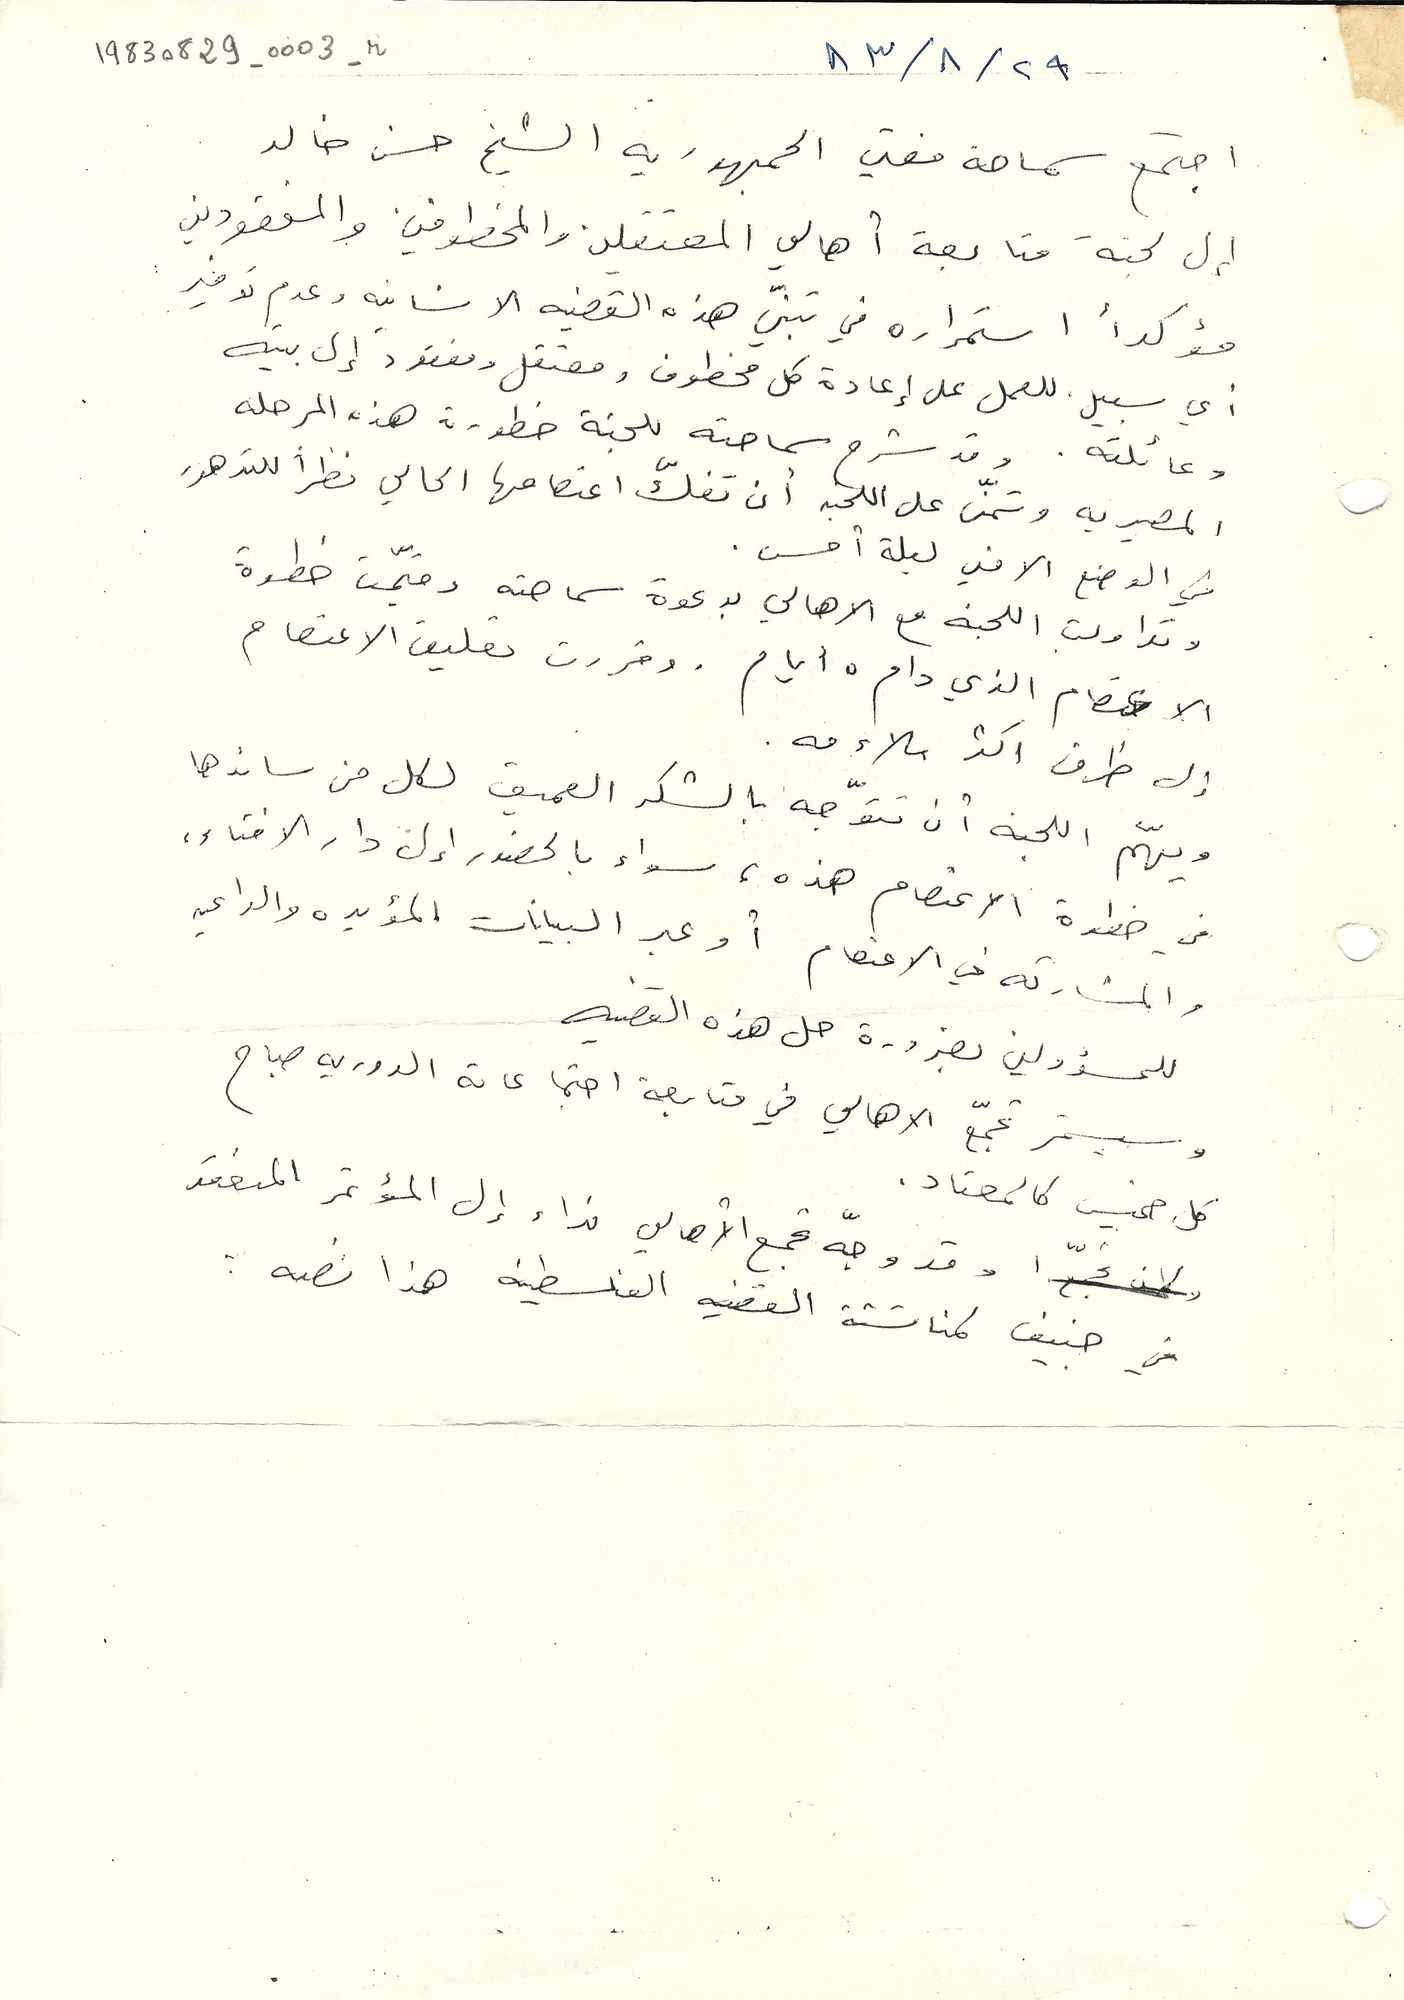 19830829_0003_r
٨٣/٨/٢٩
اجتمع سماحة مفتي الجمهوريه الشيخ حسن خالد
إلى لجنة متابعة أهالي المعتقلين والمخطوفين والمفقودين
مؤكداً استمراره في تبنّي هذه القضيه الانسانيه وعدم توفير
أي سبيل للعمل على إعادة كل مخطوف ومعتقل ومفقود إلى بيته
وعائلته. وقد شرح سماحته للجنة خطورة هذه المرحله
المصيريه وتمنّى على اللجنه أن تفكّ اعتصامها الحالي نظراً للتدهور
في الوضع الامني ليلة أمس.
وتداولت اللجنه مع الاهالي بدعوة سماحته وقيّمت خطوة
الاعتصام الذي دام ٥ أيام. وقررت تعليق الاعتصام
إلى ظرف اكثر ملاءمه.
ويهمّ اللجنه أن تتوّجه بالشكر العميق لكل من ساندها
في خطوة الاعتصام هذه، سواء بالحضور إلى دار الافتاء،
والمشاركه في الاعتصام أو عبر البيانات المؤيده والداعيه
للمسؤولين بضرورة حل هذه القضيه
وسيستمر تجمّع الاهالي في متابعة اجتماعاته الدوريه صباح
كل خميس كالمعتاد.
وقد وجّه تجمع الأهالي نداء إلى المؤتمر المنعقد
في جنيف لمناقشة القضيه الفلسطينيه هذا نصه :